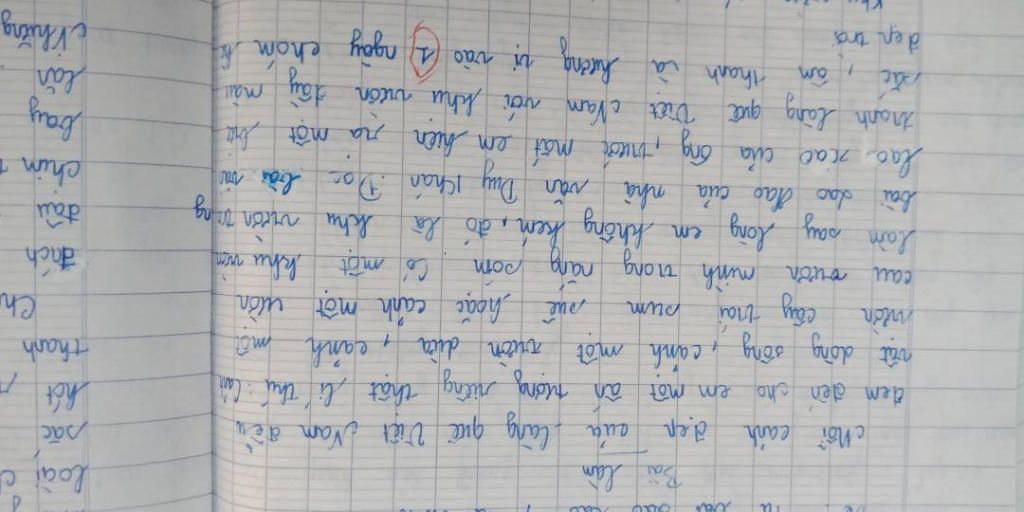 Bài làm
Mỗi cảnh đẹp của làng quê Việt Nam đều
đem đến cho em một ấn tượng riêng thật lí thú: Cảnh
vật dòng sông, cảnh một vườn dừa, cảnh một
vườn cây trái sum suê hoặc cảnh một vườn
cau vươn mình trong nắng sớm. Có một khu vườn
làm say lòng em không kém, đó là khu vườn trong
bài dao đao của nhà văn Duy Khán. Đọc bài văn
lao xao của ông, trước mắt em hiện ra một
thanh làng quê Việt Nam với khu vườn đầy màu
sắc, âm thanh và hương vị vào 1 ngày chớm hè
đẹp trời
Loài
sắc
hót
thanh
đích
đầu
chim
bay
lần
Không